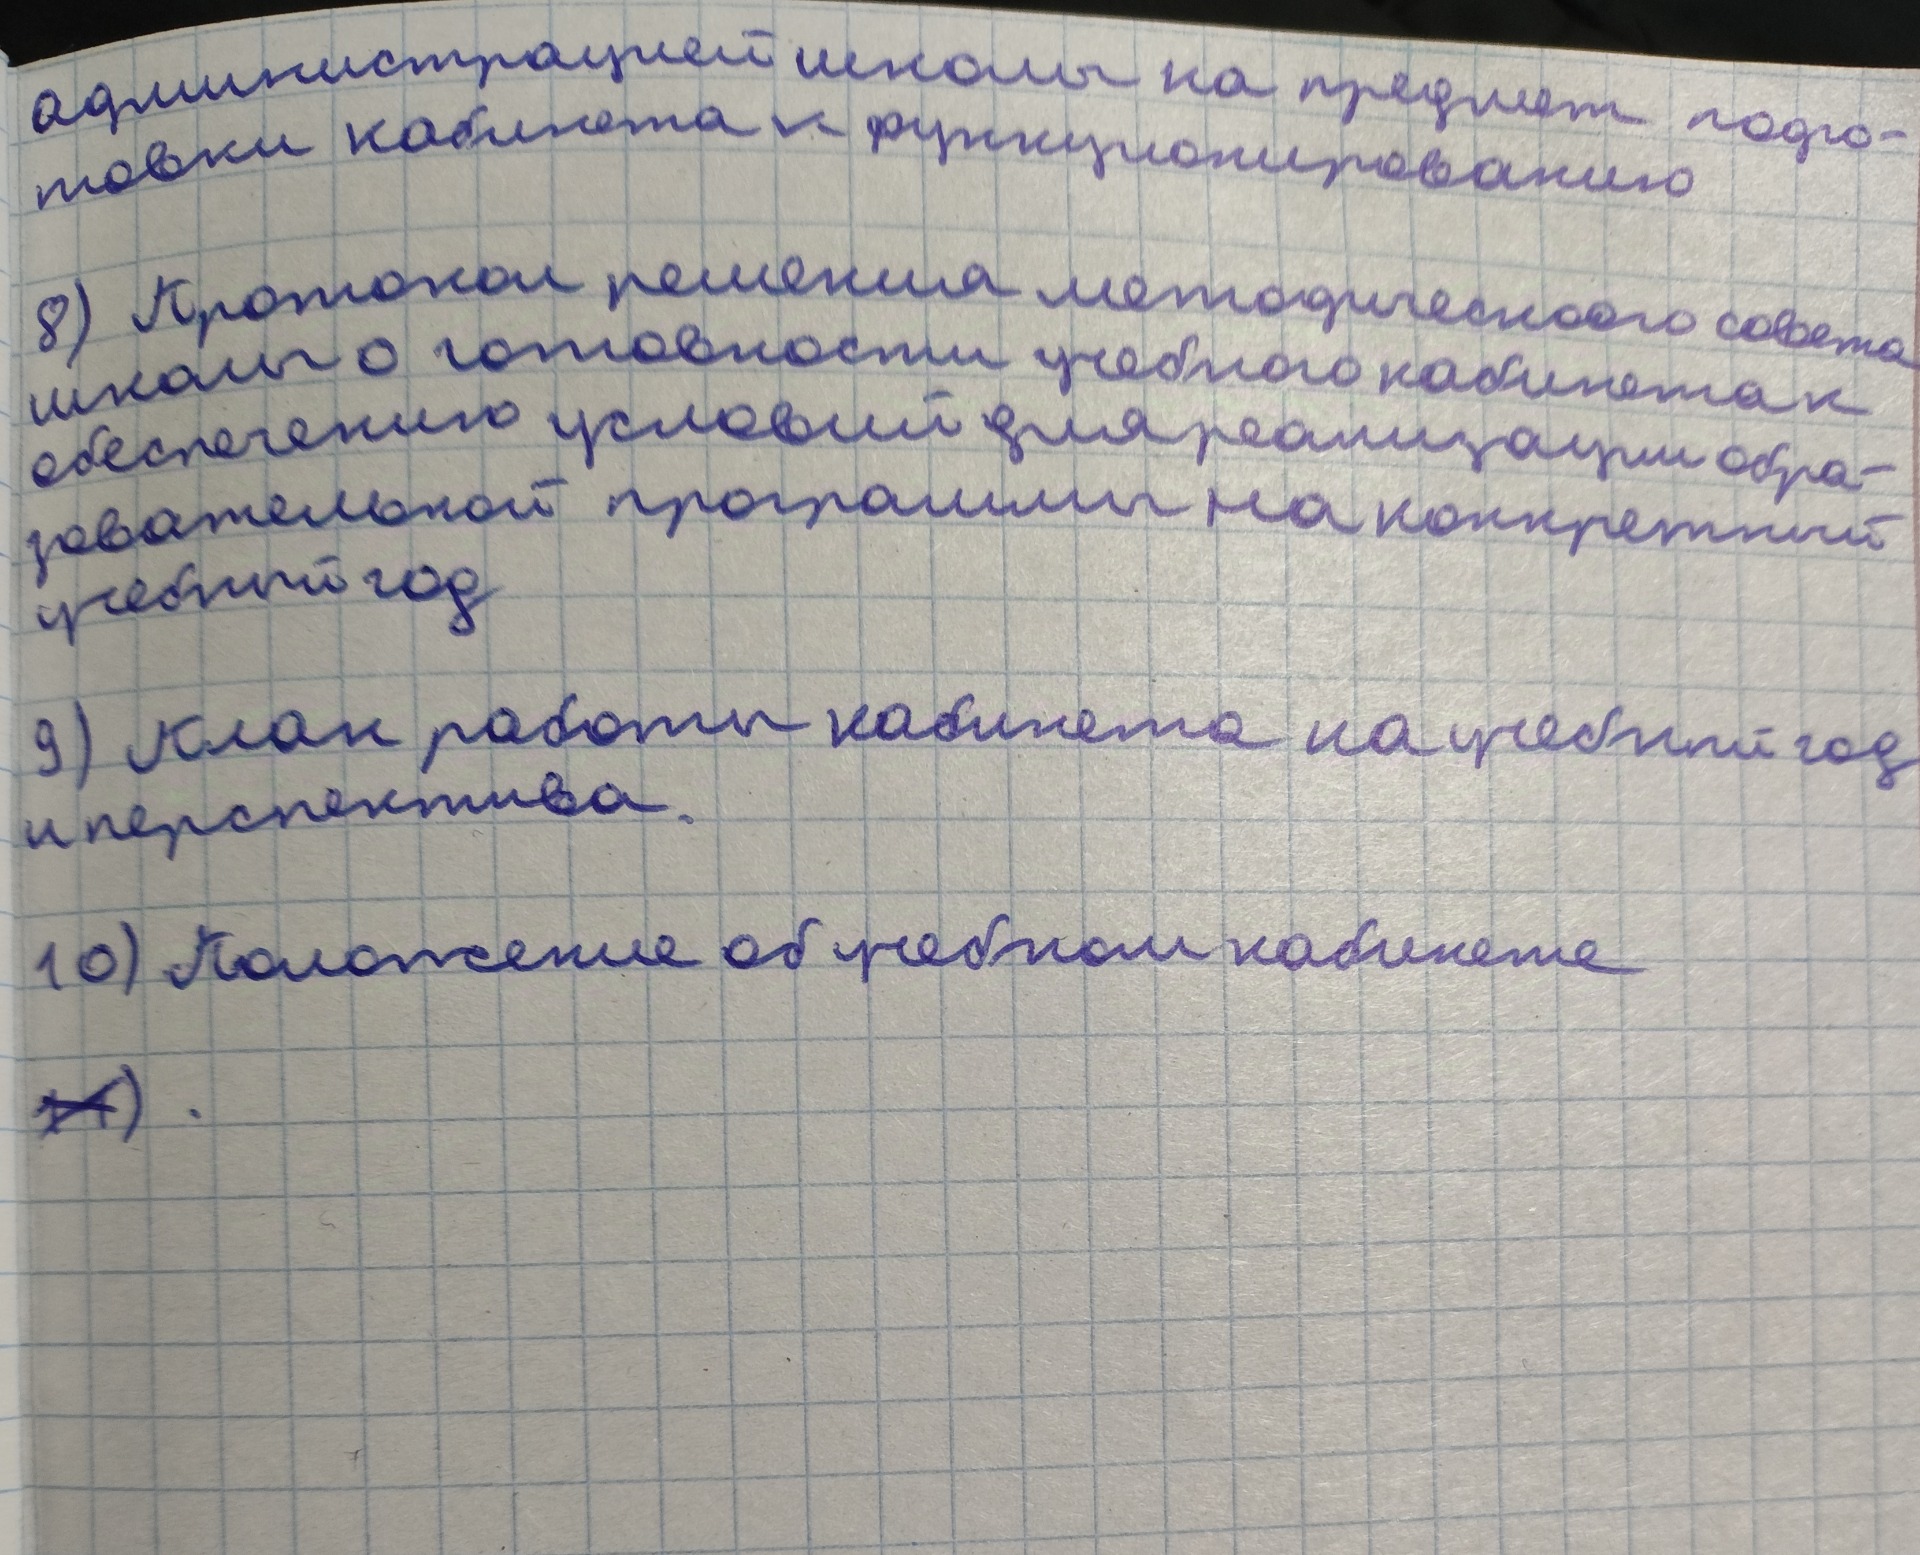 администрацией школы на предмет подго-
товки кабинета к функционированию
8) Протокол решения методического совета
школы о готовности учебного кабинета к
обеспечению условий для реализации обра-
зовательной программы на конкретный
учебный год
9) План работы кабинета на учебный год
и перспектива.
10) Положение об учебном кабинете